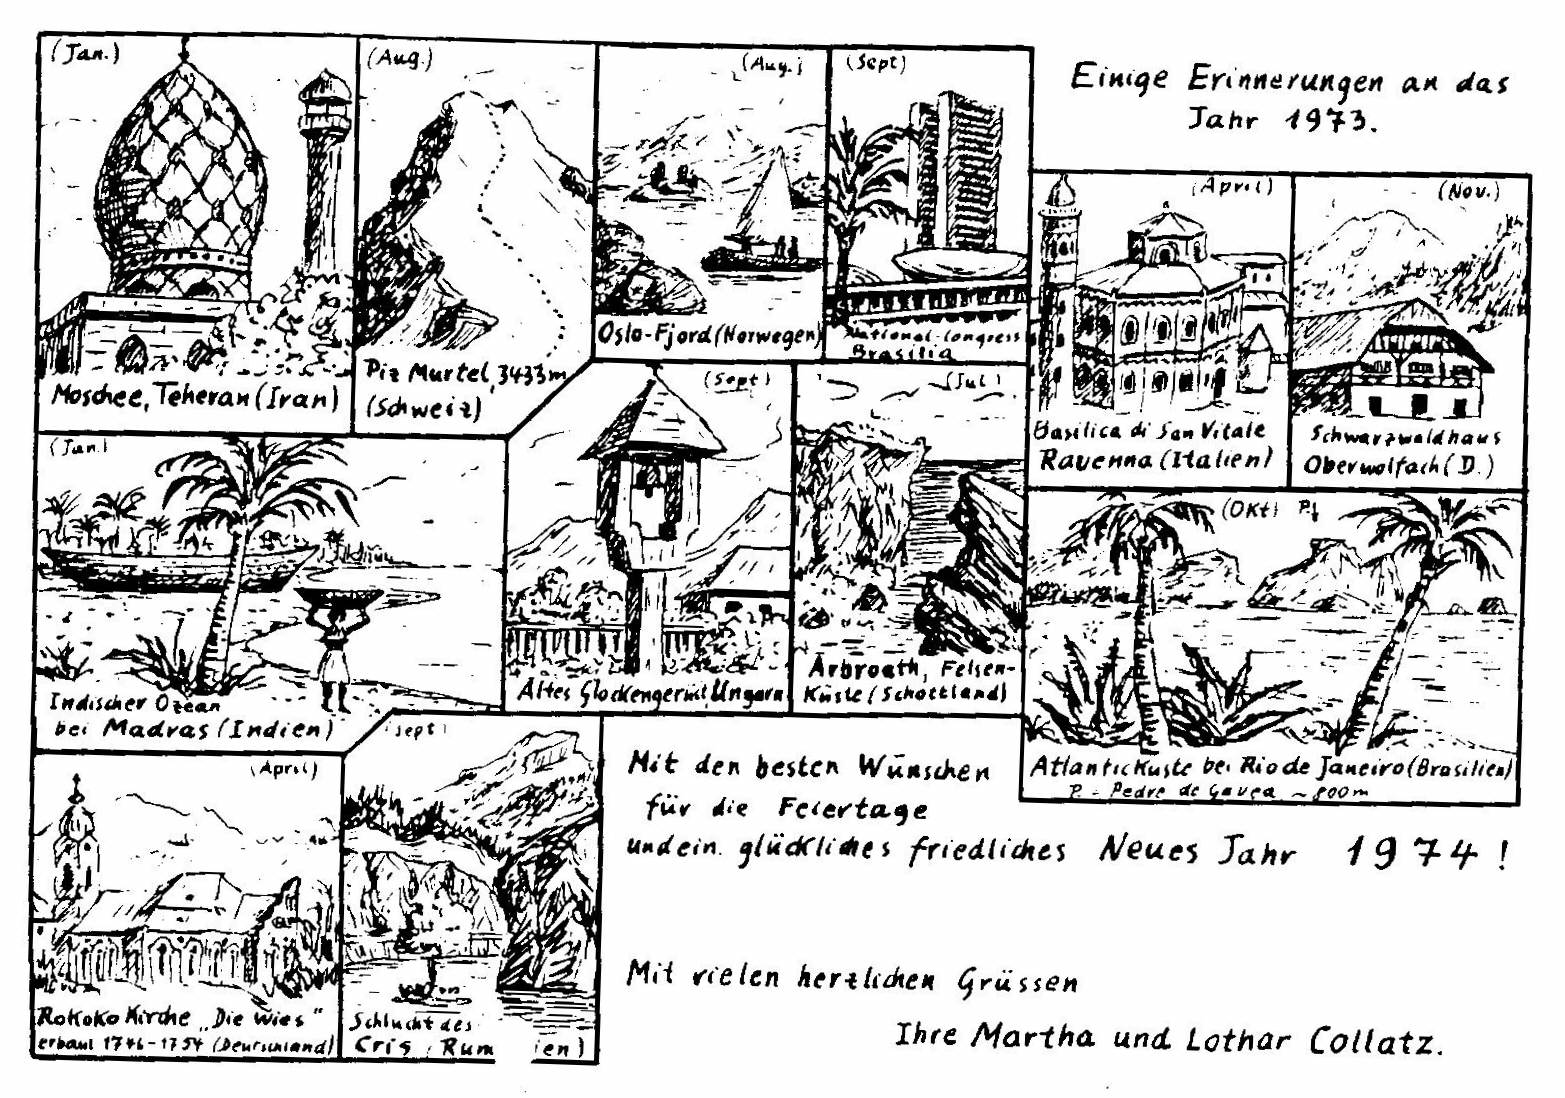 Einige Erinnerungen an das
Jahr 1973.
(Jan.)
Moschee, Teheran (Iran)
(Aug.)
Piz Murtel, 3433m
(Schweiz)
(Aug.)
Oslo-Fjord (Norwegen)
(Sept)
National-Congress
Brasilia
(April)
Basilica di San Vitale
Ravenna (Italien)
(Nov.)
Schwarzwaldhaus
Oberwolfach (D.)
(Jan)
Indischer Ozean
bei Madras (Indien)
(Sept)
Altes Glockengerüst, Ungarn
(Jul)
Arbroath, Felsen-
Küste (Schottland)
(Okt)
P.
Atlantikküste bei Rio de Janeiro (Brasilien)
P. = Pedre de Gavea ~ 800m
(April)
Rokoko Kirche „Die Wies"
erbaut 1746-1754 (Deutschland)
(Sept)
Schlucht des
Cris, Rum ien)
Mit den besten Wünschen
für die Feiertage
und ein glückliches friedliches Neues Jahr 1974!
Mit vielen herzlichen Grüssen
Ihre Martha und Lothar Collatz.